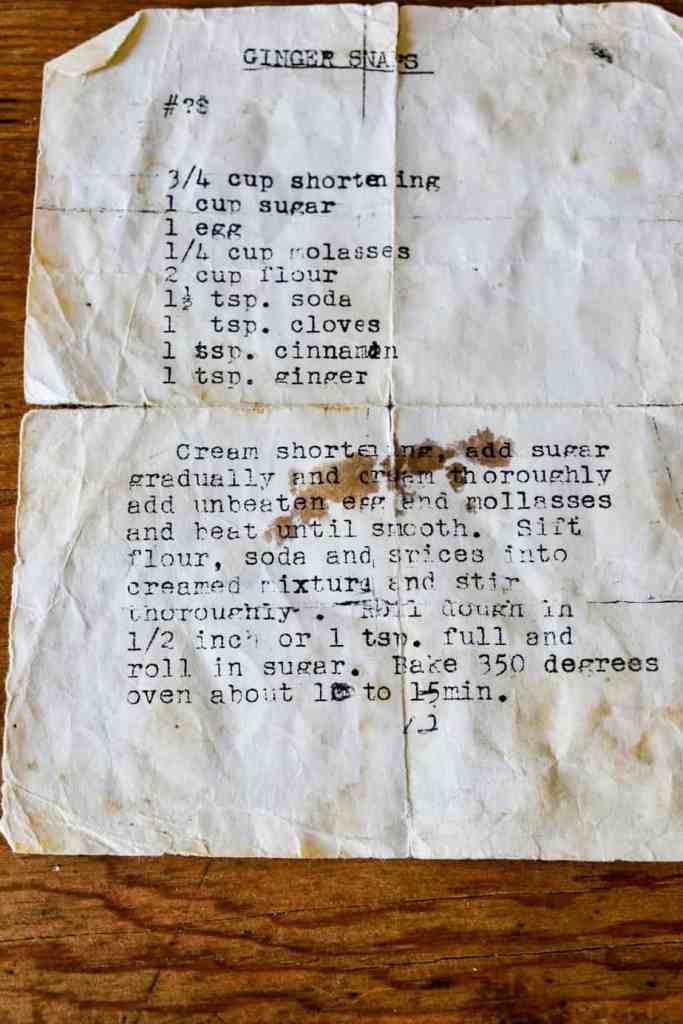 GINGER SNAPS
#?$
3/4 cup shortening
1 cup sugar
1 egg
1/4 cup molasses
2 cup flour
1½ tsp. soda
1 tsp. cloves
1 tsp. cinnamon
1 tsp. ginger
Cream shortening, add sugar
gradually and cream thoroughly
add unbeaten egg and mollasses
and beat until smooth. Sift
flour, soda and spices into
creamed mixture and stir
thoroughly. Roll dough in
1/2 inch or 1 tsp. full and
roll in sugar. Bake 350 degrees
oven about 10 to 15min.
12